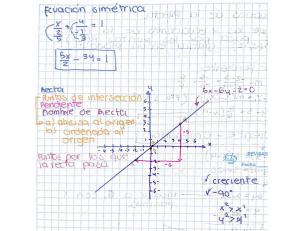 Ecuación simétrica
x/2/5 + y/-1/3 = 1
5x/2 - 3y = 1
Recta
- Puntos de intersección
Pendiente
Nombre de Recta
- a) abcisa al origen
b) ordenada al origen
Puntos por los que la recta pasa
5x-6y-2=0
-5
-5
✓ creciente
✓ -90°
x² > x¹
y² > y¹